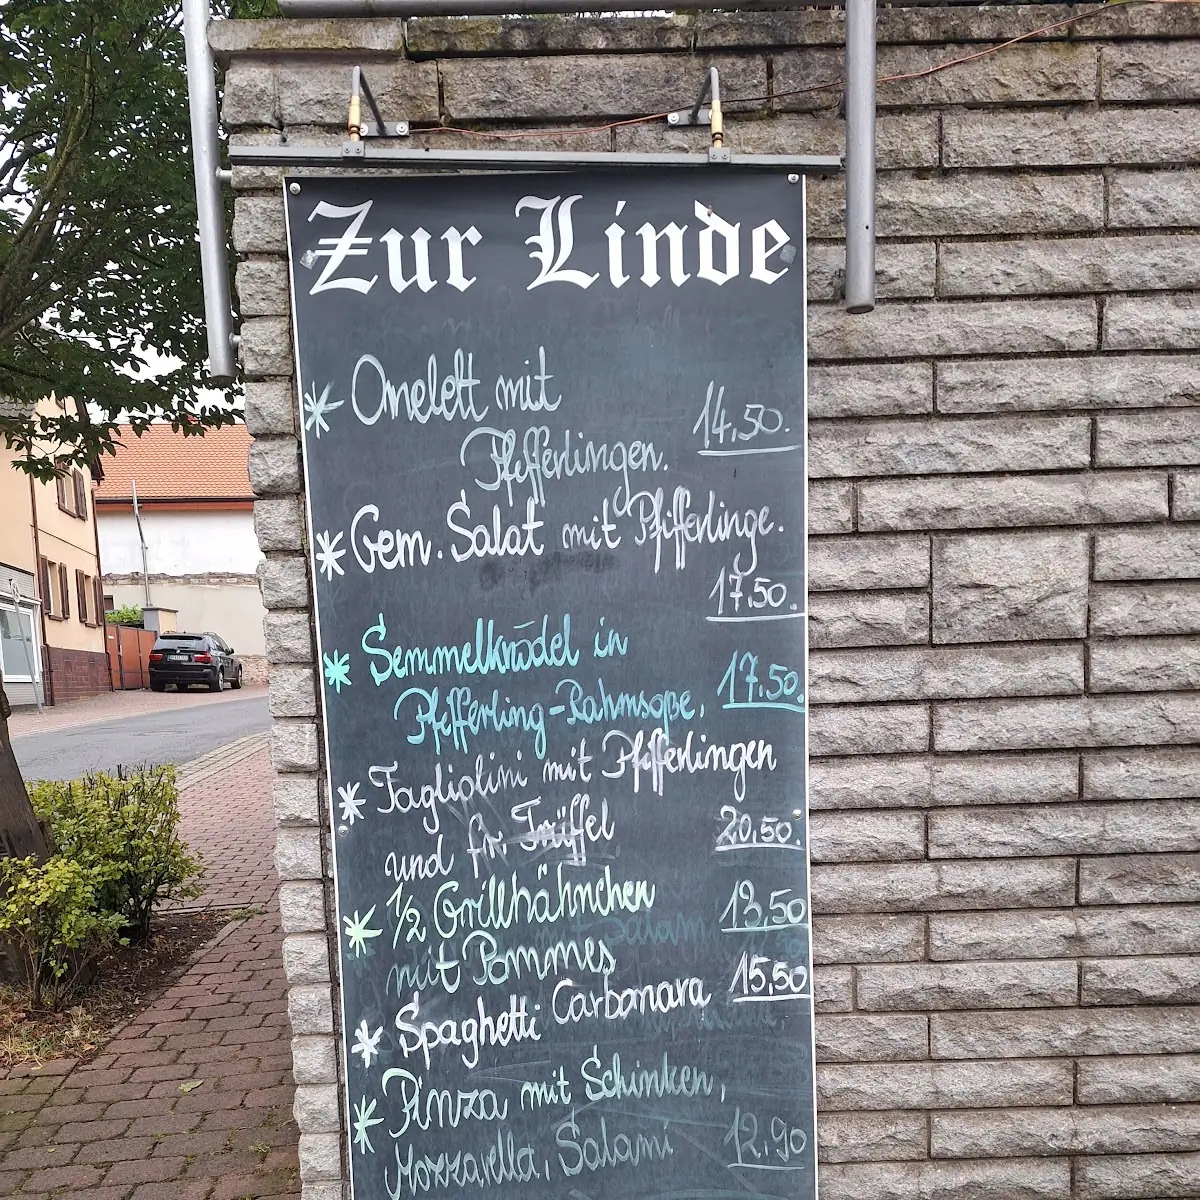 Zur Linde
* Omelett mit
Pfifferlingen. 14,50.
* Gem. Salat mit Pfifferlinge.
17,50.
* Semmelknödel in
Pfifferling-Rahmsoße. 17,50.
* Tagliolini mit Pfifferlingen
und fr. Trüffel 20,50.
* 1/2 Grillhähnchen 13,50
mit Pommes
* Spaghetti Carbonara 15,50
* Pinza mit Schinken,
Mozzarella, Salami 12,90